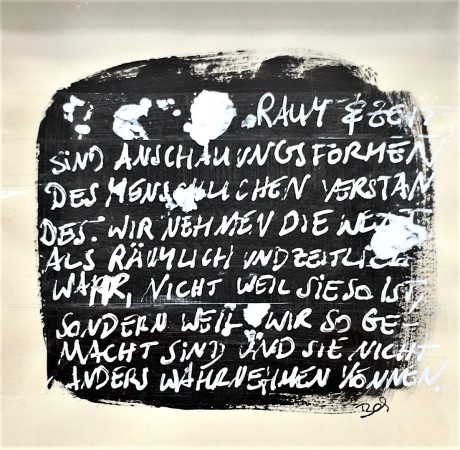 RAUM & ZEIT
SIND ANSCHAUUNGSFORMEN
DES MENSCHLICHEN VERSTAN
DES. WIR NEHMEN DIE WELT
ALS RÄUMLICH UND ZEITLICH
WAHR, NICHT WEIL SIE SO IST,
SONDERN WEIL WIR SO GE-
MACHT SIND UND SIE NICHT
ANDERS WAHRNEHMEN KÖNNEN.